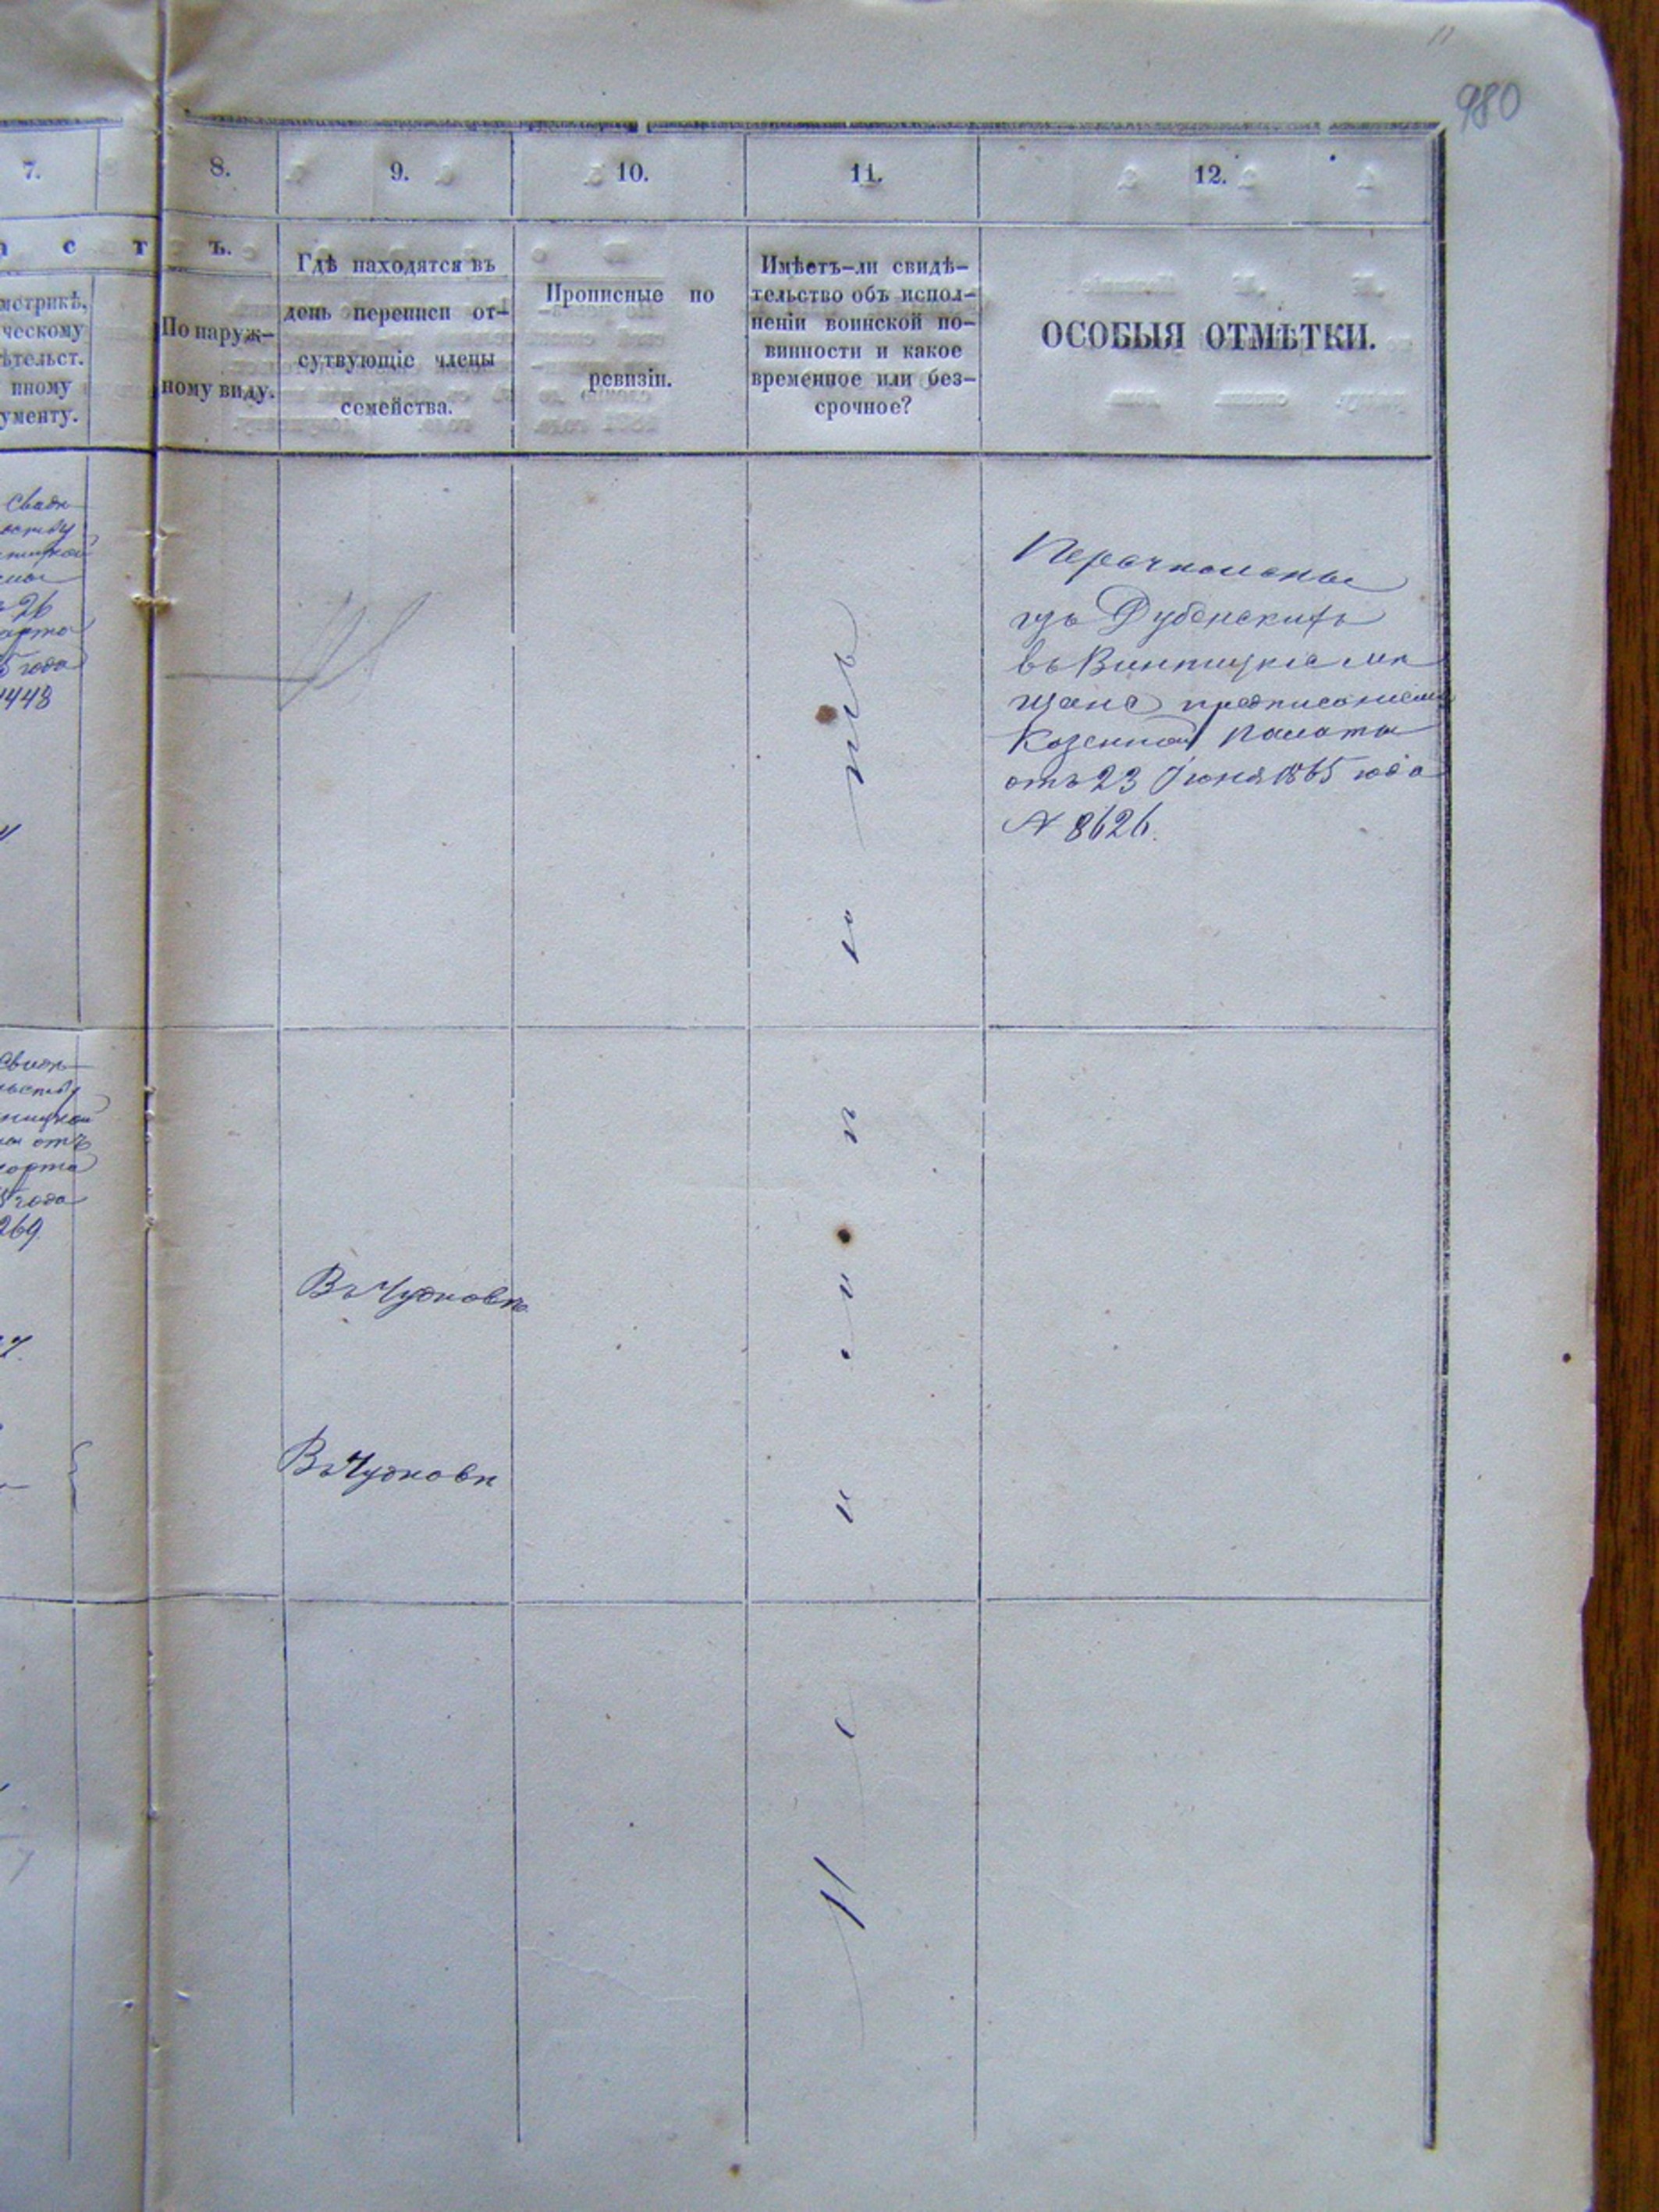 980
7.
8.
9.
10.
11.
12.
с т ъ.
метрикѣ,
ческому
ѣтельст.
иному
ументу.
По наруж-
ному виду.
Гдѣ находятся въ
день переписи от-
сутвующіе члены
семейства.
Прописные по
ревизіи.
Имѣетъ-ли свидѣ-
тельство объ испол-
неніи воинской по-
винности и какое
временное или без-
срочное?
ОСОБЫЯ ОТМѢТКИ.
26
года
1448
Перечислены
изъ Дубенскихъ
въ Винницкіе мѣ
щане предписаніемъ
Казенной Палаты
отъ 23 Іюня 1865 года
№ 8626.
отъ
года
269
Въ Чудновѣ
Въ Чудновѣ